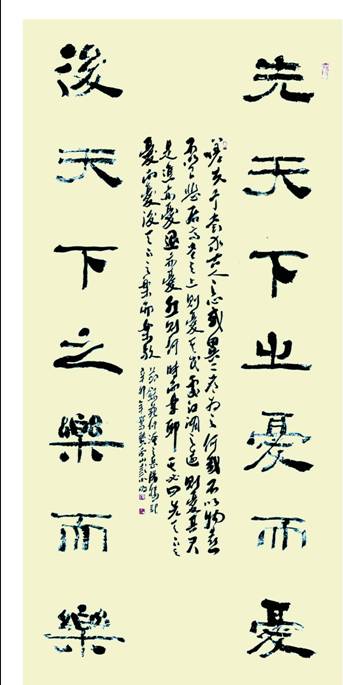 先天下之憂而憂
嗟夫予嘗求古人之心或異二者為之何哉不以物喜
不以己悲居之上則憂其民處江湖之遠則憂其君
是進亦憂退亦憂然則何時而樂耶其必曰先天下之
憂而憂後天下之樂而樂歟
節錄范仲淹之岳陽樓記
辛卯年
後天下之樂而樂